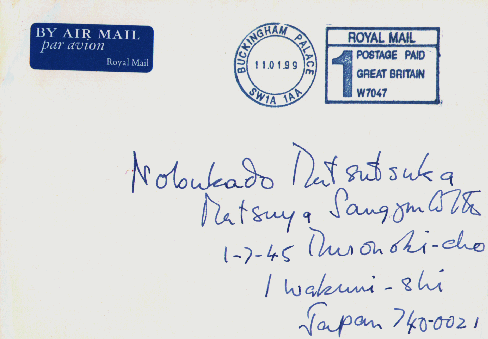 BY AIR MAIL
par avion
Royal Mail
BUCKINGHAM PALACE
11.01.99
SW1A 1AA
ROYAL MAIL
1 POSTAGE PAID
GREAT BRITAIN
W7047
Nobukado Matsutsuka
Matsuya Sangyo
1-7-45 Muronoki-cho
Iwakuni-shi
Japan 740-0021